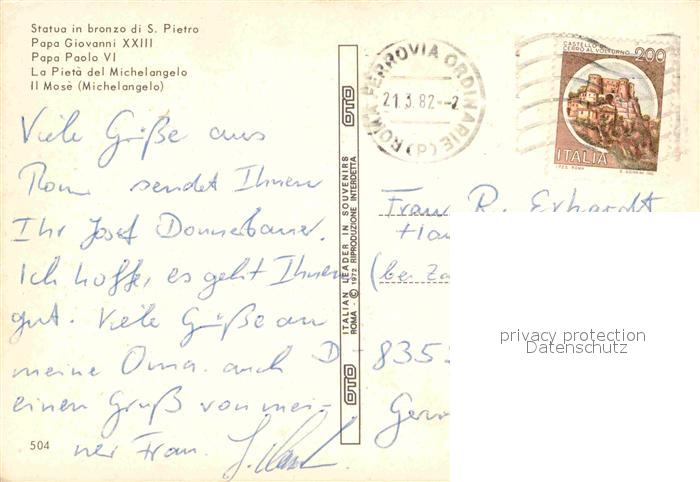 Statua in bronzo di S. Pietro
Papa Giovanni XXIII
Papa Paolo VI
La Pietà del Michelangelo
Il Mosè (Michelangelo)
Viele Grüße aus
Rom sendet Ihnen
Ihr Josef Donnebauer.
Ich hoffe, es geht Ihnen
gut. Viele Grüße an
meine Oma. auch
einen Gruß von mei-
ner Frau.
504
OTO
ITALIAN LEADER IN SOUVENIRS
ROMA - © 1972 RIPRODUZIONE INTERDETTA
OTO
ROMA FERROVIA ORDINARIE (P)
21.3.82.-2
CASTELLO
CERRO AL VOLTURNO
200
ITALIA
Frau R. Erhardt
(bei
D 835
privacy protection
Datenschutz